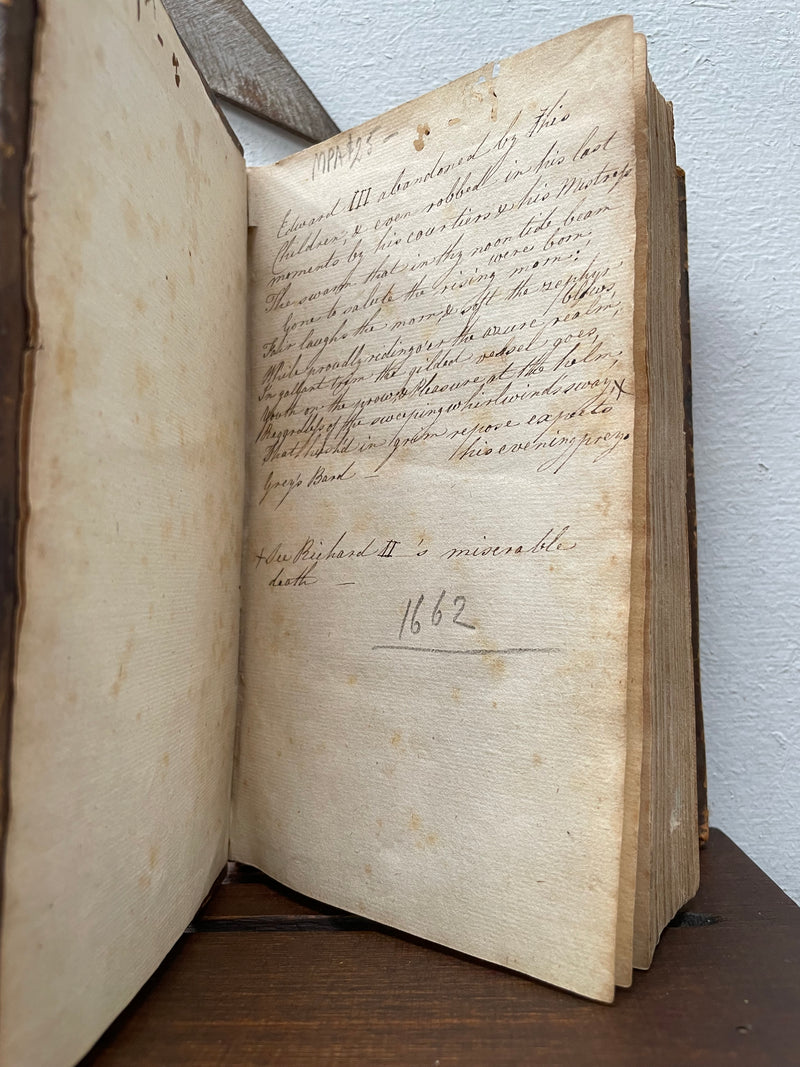 MPA$25 -
Edward III abandoned by this
Children, & even robbed in his last
moments by his courtiers & his Mistress
The swarm that in thy noon tide beam
were born,
Gone to salute the rising morn;
Fair laughs the morn, & soft the zephyr
blows
While proudly riding o'er the azure realm,
In gallant trim the gilded vessel goes,
Youth on the prow, & Pleasure at the helm,
Reggardless of the sweeping whirlwinds sway, X
That hush'd in grim repose expects
his evening prey.
Grey's Bard —
+ See Richard II's miserable
death —
1662